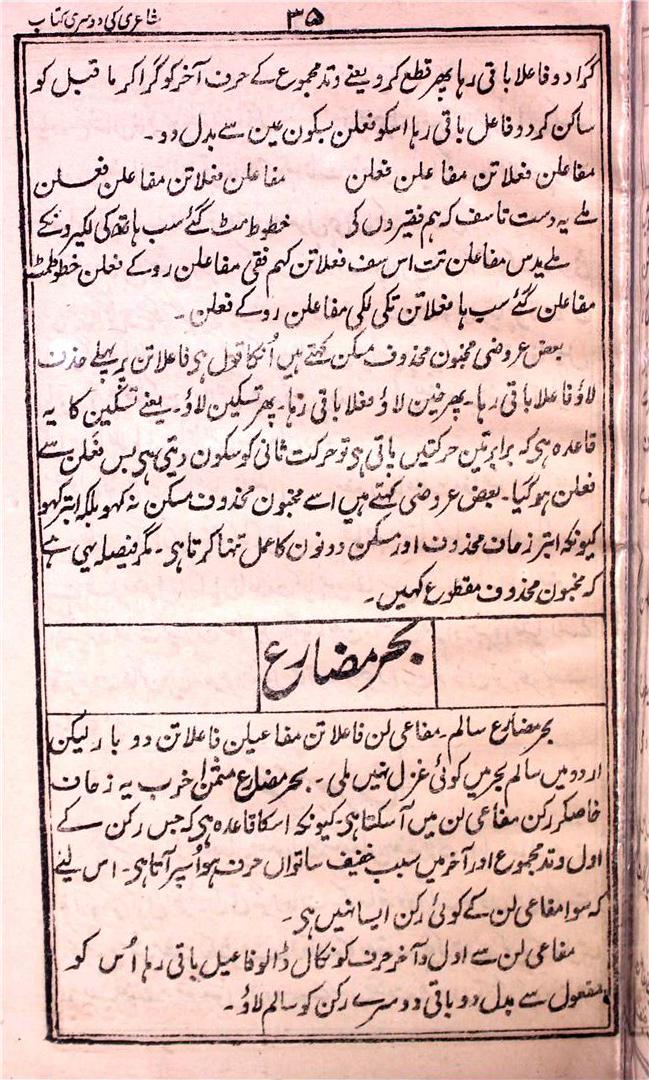 ۳۵
شاعری کی دوسری کتاب
گرادو فاعلا باقی رہا پھر قطع کرو یعنے وتد مجموع کے حرف آخر کو گرا کر ما قبل کو
ساکن کردو فاعل باقی رہا اسکو فعلن بسکون عین سے بدل دو۔
مفاعلن فعلاتن مفاعلن فعلن مفاعلن فعلاتن مفاعلن فعلن
ملے یہ دست تاسف کہ ہم فقیروں کی خطوط مٹ گئے سب ہاتھ کی لکیرونکے
ملے یدس مفاعلن تت اس سف فعلاتن کہم فقی مفاعلن روکے فعلن خطوط مٹ
مفاعلن گئے سب ہا فعلاتن تکی لکی مفاعلن روکے فعلن۔
بعض عروضی مخبون محذوف مسکن کہتے ہیں اُنکا قول ہی فاعلاتن پر پہلے حذف
لاؤ فاعلا باقی رہا۔ پھر خبن لاؤ فعلا باقی رہا۔ پھر تسکین لاؤ۔ یعنے تسکین کا یہ
قاعدہ ہی کہ برابر تین حرکتیں پاتی ہی تو حرکت ثانی کو سکون دیتی ہی بس فَعِلن سے
فعلن ہو گیا۔ بعض عروضی کہتے ہیں اسے مخبون محذوف مسکن نہ کہو بلکہ ابتر کہو
کیونکہ ابتر زحاف محذوف اور مسکن دونوں کا عمل تنہا کرتا ہی۔ مگر فیصلہ یہی ہے
کہ مخبون محذوف مقطوع کہیں۔
بحر مضارع
بحر مضارع سالم۔ مفاعی لن فاعلاتن مفاعیلن فاعلاتن دو بار لیکن
اردو میں سالم بحر میں کوئی غزل نہیں ملی۔ بحر مضارع مثمن اخرب یہ زحاف
خاصکر رکن مفاعی لن میں آسکتا ہی۔ کیونکہ اسکا قاعدہ ہی کہ جس رکن کے
اول وتد مجموع اور آخر میں سبب خفیف ساتواں حرف ہو اُسپر آتا ہی۔ اس لیئے
کہ سوا مفاعی لن کے کوئی رکن ایسا نہیں ہی۔
مفاعی لن سے اول و آخر حرف کو نکال ڈالو فاعیل باقی رہا اُس کو
مفعول سے بدل دو باقی دوسرے رکن کو سالم لاؤ۔